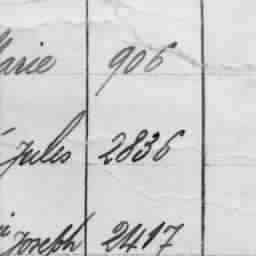 Marie 906
Jules 2836
Joseph 2417